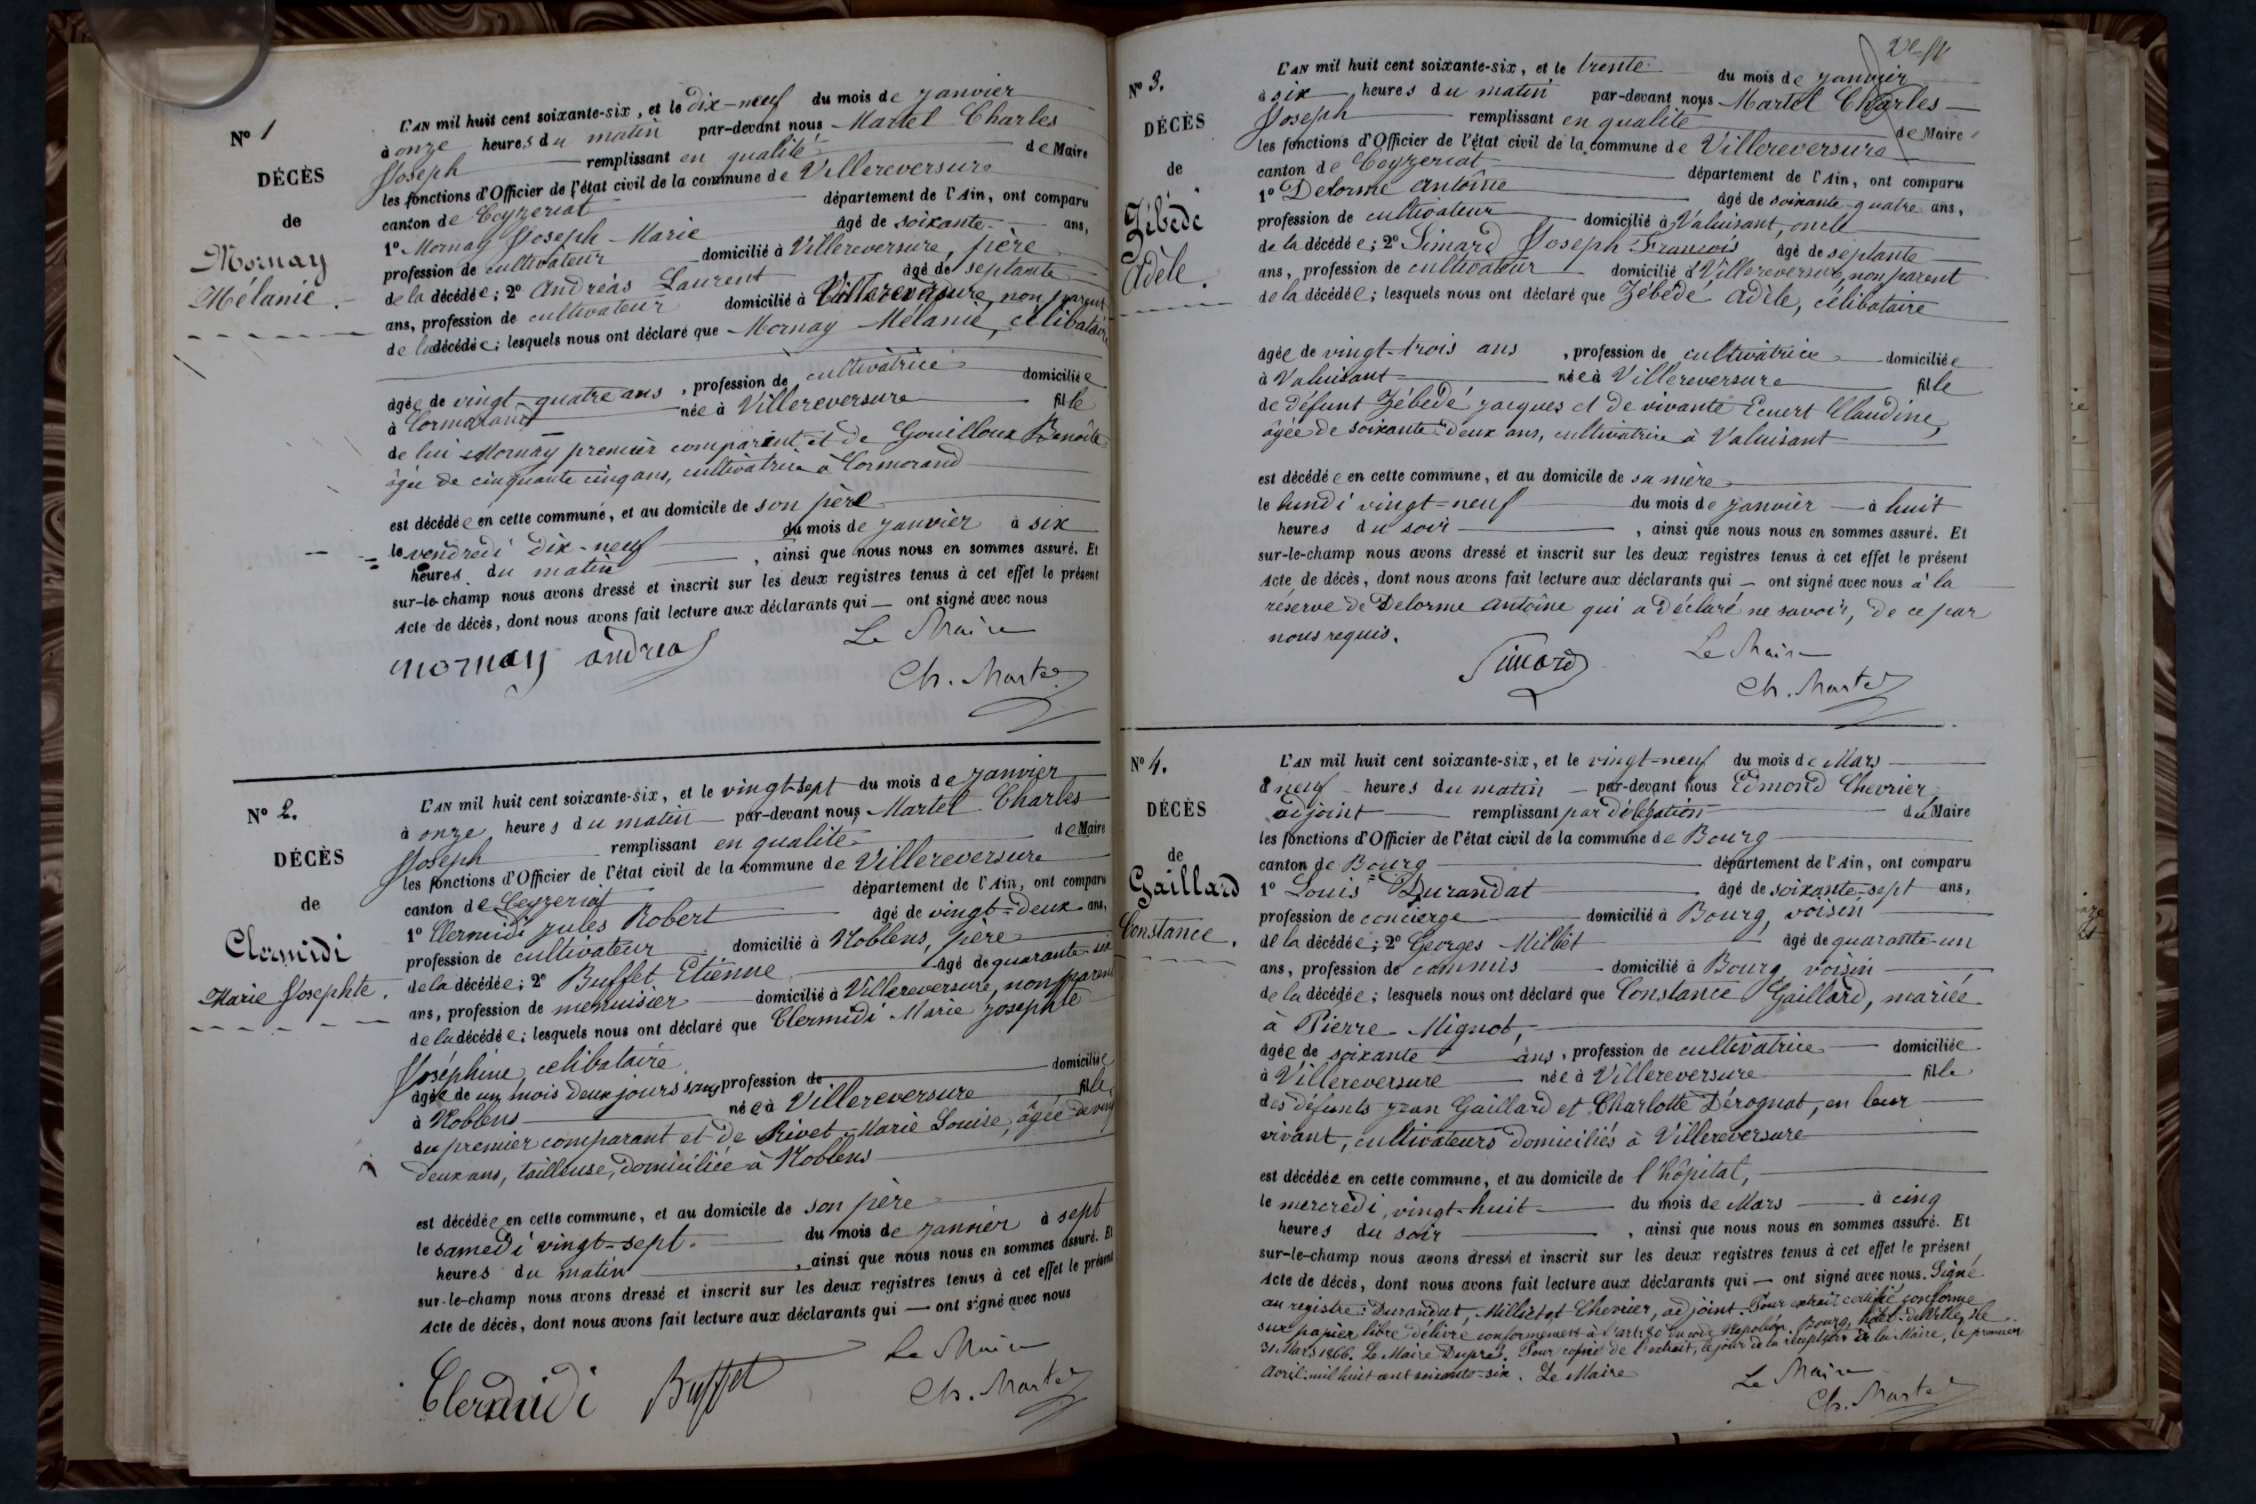 N° 1
DÉCÈS
de
Mornay
Mélanie.
L'AN mil huit cent soixante-six, et le dix-neuf du mois de janvier
à onze heures du matin par-devant nous Martel Charles
Joseph remplissant en qualité de Maire
les fonctions d'Officier de l'état civil de la commune de Villereversure
canton de Ceyzeriat département de l'Ain, ont comparu
1° Mornay Joseph-Marie âgé de soixante ans,
profession de cultivateur domicilié à Villereversure, père
de la décédée; 2° Andréas Laurent âgé de septante
ans, profession de cultivateur domicilié à Villereversure, non parent
de la décédée; lesquels nous ont déclaré que Mornay Mélanie, célibataire
âgée de vingt-quatre ans, profession de cultivatrice domiciliée
à Cormorand née à Villereversure fille
de lui Mornay premier comparant et de Gouilloux Benoîte
âgée de cinquante cinq ans, cultivatrice à Cormorand
est décédée en cette commune, et au domicile de son père
le vendredi dix-neuf du mois de janvier à six
heures du matin, ainsi que nous nous en sommes assuré. Et
sur-le-champ nous avons dressé et inscrit sur les deux registres tenus à cet effet le présent
Acte de décès, dont nous avons fait lecture aux déclarants qui — ont signé avec nous
Le Maire
mornay andreas
Ch. Martel
N° 2.
DÉCÈS
de
Clermidi
Marie Josephte.
L'AN mil huit cent soixante-six, et le vingt-sept du mois de janvier
à onze heures du matin par-devant nous Martel Charles
Joseph remplissant en qualité de Maire
les fonctions d'Officier de l'état civil de la commune de Villereversure
canton de Ceyzeriat département de l'Ain, ont comparu
1° Clermidi jules Robert âgé de vingt-deux ans,
profession de cultivateur domicilié à Noblens, père
de la décédée; 2° Buffet Etienne âgé de quarante-six
ans, profession de menuisier domicilié à Villereversure, non parent
de la décédée; lesquels nous ont déclaré que Clermidi Marie josephte
Joséphine, célibataire
âgée de un mois deux jours sans profession de domiciliée
à Noblens née à Villereversure fille
du premier comparant et de Rivet Marie Louise, âgée de vingt
deux ans, tailleuse, domiciliée à Noblens
est décédée en cette commune, et au domicile de son père
le samedi vingt-sept. du mois de janvier à sept
heures du matin, ainsi que nous nous en sommes assuré. Et
sur-le-champ nous avons dressé et inscrit sur les deux registres tenus à cet effet le présent
Acte de décès, dont nous avons fait lecture aux déclarants qui — ont signé avec nous
Le Maire
Clermidi Buffet
Ch. Martel
N° 3.
DÉCÈS
de
Zébédé
Adèle.
L'AN mil huit cent soixante-six, et le trente du mois de janvier
à six heures du matin par-devant nous Martel Charles
Joseph remplissant en qualité de Maire
les fonctions d'Officier de l'état civil de la commune de Villereversure
canton de Ceyzeriat département de l'Ain, ont comparu
1° Delorme antoine âgé de soixante-quatre ans,
profession de cultivateur domicilié à Valuisant, oncle
de la décédée; 2° Simard Joseph-François âgé de septante
ans, profession de cultivateur domicilié à Villereversure, non parent
de la décédée; lesquels nous ont déclaré que Zébédé adèle, célibataire
âgée de vingt-trois ans, profession de cultivatrice domiciliée
à Valuisant née à Villereversure fille
de défunt Zébédé jacques et de vivante Ecuert Claudine,
âgée de soixante-deux ans, cultivatrice à Valuisant
est décédée en cette commune, et au domicile de sa mère
le lundi vingt-neuf du mois de janvier à huit
heures du soir, ainsi que nous nous en sommes assuré. Et
sur-le-champ nous avons dressé et inscrit sur les deux registres tenus à cet effet le présent
Acte de décès, dont nous avons fait lecture aux déclarants qui — ont signé avec nous à la
réserve de Delorme antoine qui a déclaré ne savoir, de ce par
nous requis.
Le Maire
Simard
Ch. Martel
N° 4.
DÉCÈS
de
Gaillard
Constance.
L'AN mil huit cent soixante-six, et le vingt-neuf du mois de Mars
à neuf heures du matin par-devant nous Edmond Chevrier
adjoint remplissant par délégation du Maire
les fonctions d'Officier de l'état civil de la commune de Bourg
canton de Bourg département de l'Ain, ont comparu
1° Louis Durandat âgé de soixante-sept ans,
profession de concierge domicilié à Bourg, voisin
de la décédée; 2° Georges Milliet âgé de quarante-un
ans, profession de commis domicilié à Bourg, voisin
de la décédée; lesquels nous ont déclaré que Constance Gaillard, mariée
à Pierre Mignot,
âgée de soixante ans, profession de cultivatrice domiciliée
à Villereversure née à Villereversure fille
des défunts jean Gaillard et Charlotte Dérognat, en leur
vivant, cultivateurs domiciliés à Villereversure
est décédée en cette commune, et au domicile de l'hôpital,
le mercredi, vingt-huit du mois de Mars à cinq
heures du soir, ainsi que nous nous en sommes assuré. Et
sur-le-champ nous avons dressé et inscrit sur les deux registres tenus à cet effet le présent
Acte de décès, dont nous avons fait lecture aux déclarants qui — ont signé avec nous. Signé
au registre: Durandat, Milliet et Chevrier, adjoint. Pour extrait certifié conforme
sur papier libre délivré conformément à l'art. 80 du code Napoléon. Bourg, hôtel-de-Ville, le
31 Mars 1866. Le Maire Dupré. Pour copie de l'extrait, le jour de la réception à la Mairie, le premier
Avril mil huit cent soixante-six. Le Maire
Le Maire
Ch. Martel